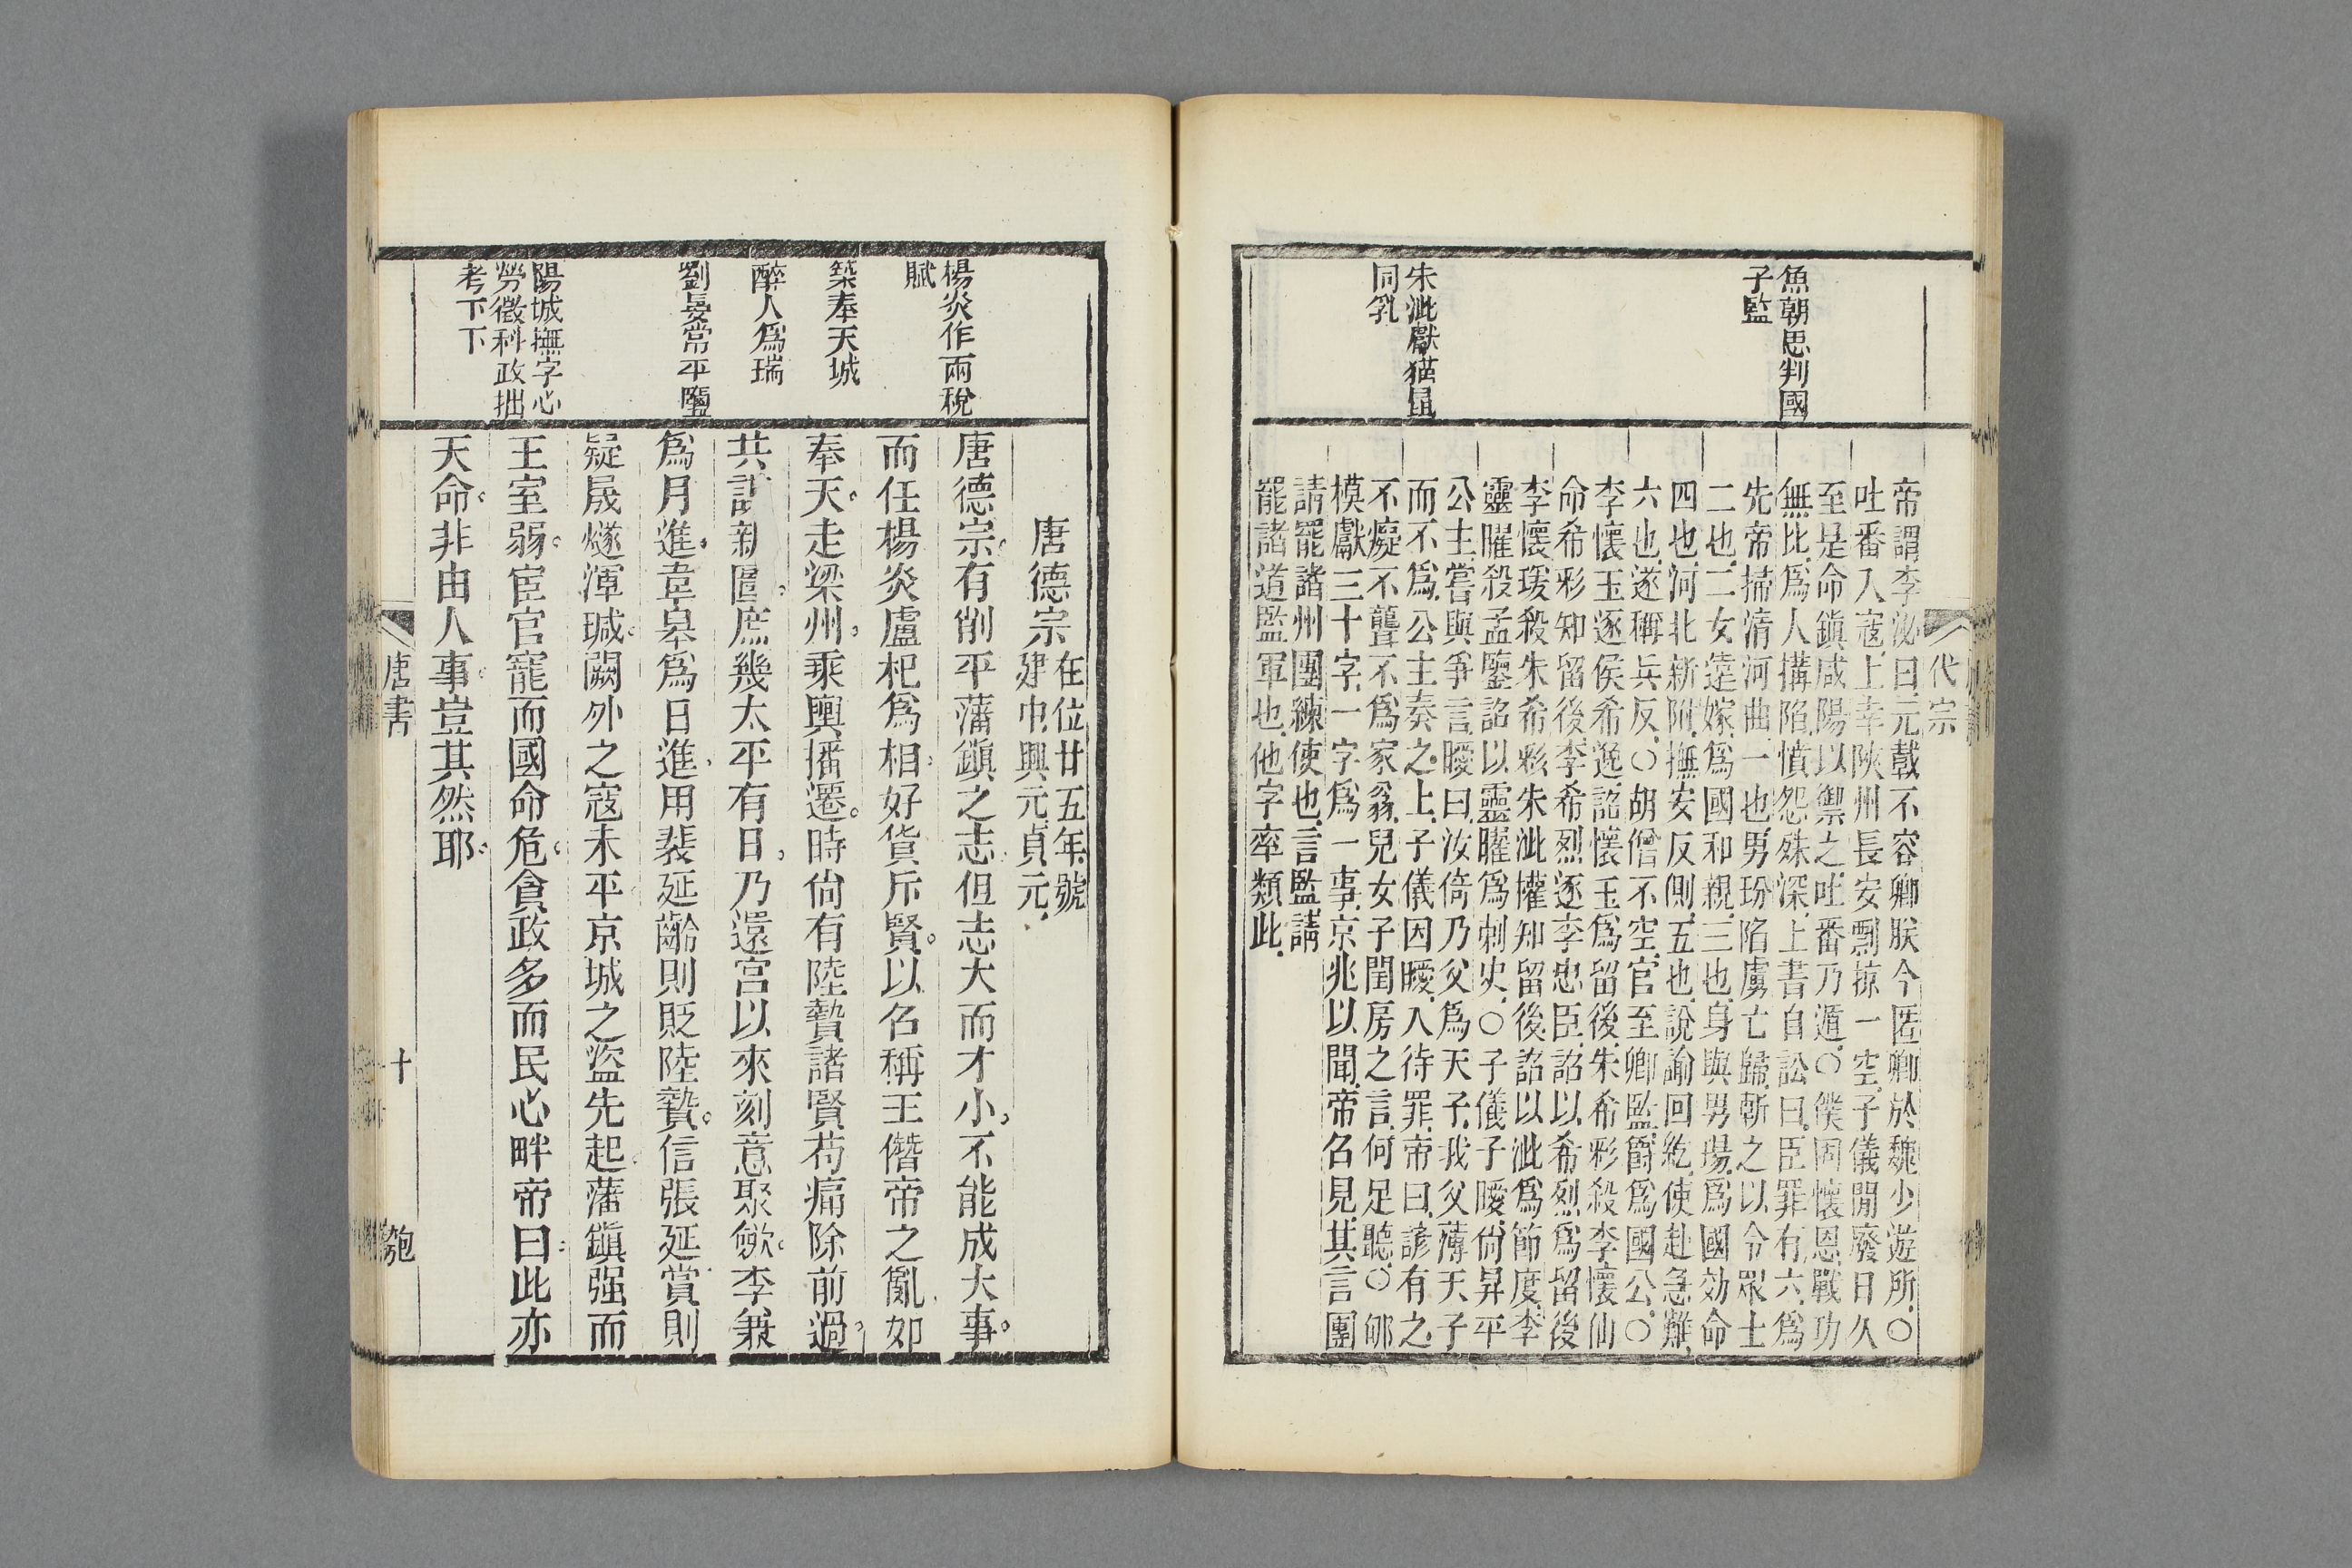 代宗
魚朝恩判國
子監
朱泚獻猫鼠
同乳
帝謂李泌曰元載不容卿朕今匿卿於魏少遊所○
吐番入寇上幸陝州長安剽掠一空子儀閒廢日久
至是命鎮咸陽以禦之吐番乃遁○僕固懷恩戰功
無比爲人搆陷憤怨殊深上書自訟曰臣罪有六爲
先帝掃清河曲一也男玢陷虜亡歸斬之以令眾士
二也二女遠嫁爲國和親三也身與男瑒爲國効命
四也河北新附撫安反側五也說諭回紇使赴急難
六也遂稱兵反○胡僧不空官至卿監爵爲國公○
李懷玉逐侯希逸詔懷玉爲留後朱希彩殺李懷仙
命希彩知留後李希烈逐李忠臣詔以希烈爲留後
李懷瑗殺朱希彩朱泚權知留後詔以泚爲節度李
靈曜殺孟鑒詔以靈曜爲刺史○子儀子曖尙昇平
公主嘗與爭言曖曰汝倚乃父爲天子我父薄天子
而不爲公主奏之上子儀因曖入待罪帝曰諺有之
不癡不聾不爲家翁兒女子閨房之言何足聽○郇
模獻三十字一字爲一事京兆以聞帝召見其言團
請罷諸州團練使也言監請
罷諸道監軍也他字率類此
楊炎作兩稅
賦
築奉天城
醉人爲瑞
劉晏常平鹽
陽城撫字心
勞徵科政拙
考下下
唐德宗在位廿五年號
建中興元貞元
唐德宗有削平藩鎮之志但志大而才小不能成大事
而任楊炎盧杞爲相好貨斥賢以名稱王僭帝之亂如
奉天走梁州乘輿播遷時尙有陸贄諸賢苟痛除前過
共謀新圖庶幾太平有日乃還宮以來刻意聚歛李兼
爲月進韋皋爲日進用裴延齡則貶陸贄信張延賞則
疑晟燧渾瑊闕外之寇未平京城之盜先起藩鎮强而
王室弱宦官寵而國命危貪政多而民心畔帝曰此亦
天命非由人事豈其然耶
唐書
十